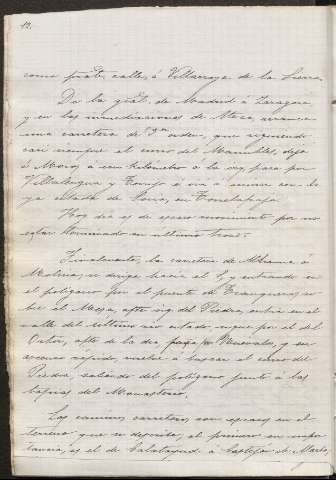 12.
como pral. calle, á Villarroya de la Sierra.
De la gral. de Madrid á Zaragoza,
y en las inmediaciones de Ateca, arranca
una carretera de 3er orden, que siguiendo
casi siempre el curso del Manubles, deja
á Moros á un kilómetro á la izq. pasa por
Villalengua y Torrijo é va á unirse con la
ya citada de Soria, en Torrelapaja.
Hoy día es de escaso movimiento por no
estar terminada en último trozo.
Finalmente, la carretera de Alhama á
Molina, se dirige hacia el S, y entrando en
el polígono por el puente de
el Mesa, afte izq. del Piedra, entra en el
valle del último río citado, sigue por el del
Ortiz, afte. de la dra. pasa por Nuévalos, y en
recorrido rápido, vuelve á buscar el curso del
Piedra, saliendo del polígono junto á las
tapias del Monasterio.
Los caminos carreteros son escasos en el
terreno que se describe, el primero en impor-
tancia, es el de Calatayud á Castejón de